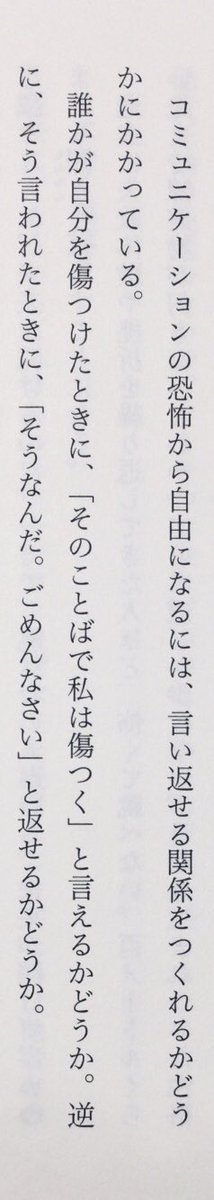 コミュニケーションの恐怖から自由になるには、言い返せる関係をつくれるかどう
かにかかっている。
誰かが自分を傷つけたときに、「そのことばで私は傷つく」と言えるかどうか。逆
に、そう言われたときに、「そうなんだ。ごめんなさい」と返せるかどうか。